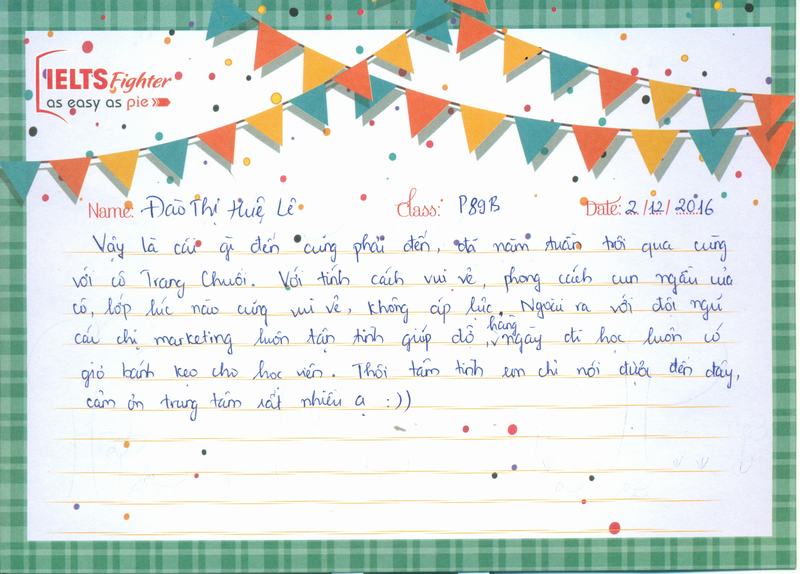 IELTS Fighter
as easy as pie
Name: Đào Thị Huệ Lê Class: P89B Date: 2/12/2016
Vậy là cái gì đến cũng phải đến, đã năm tuần trôi qua cùng
với cô Trang Chuối. Với tính cách vui vẻ, phong cách cun ngầu của
cô, lớp lúc nào cũng vui vẻ, không áp lực. Ngoài ra với đội ngũ
các chị marketing luôn tận tình giúp đỡ, hàng ngày đi học luôn có
giỏ bánh kẹo cho học viên. Thôi tâm tình em chỉ nói được đến đây,
cảm ơn trung tâm rất nhiều ạ :))